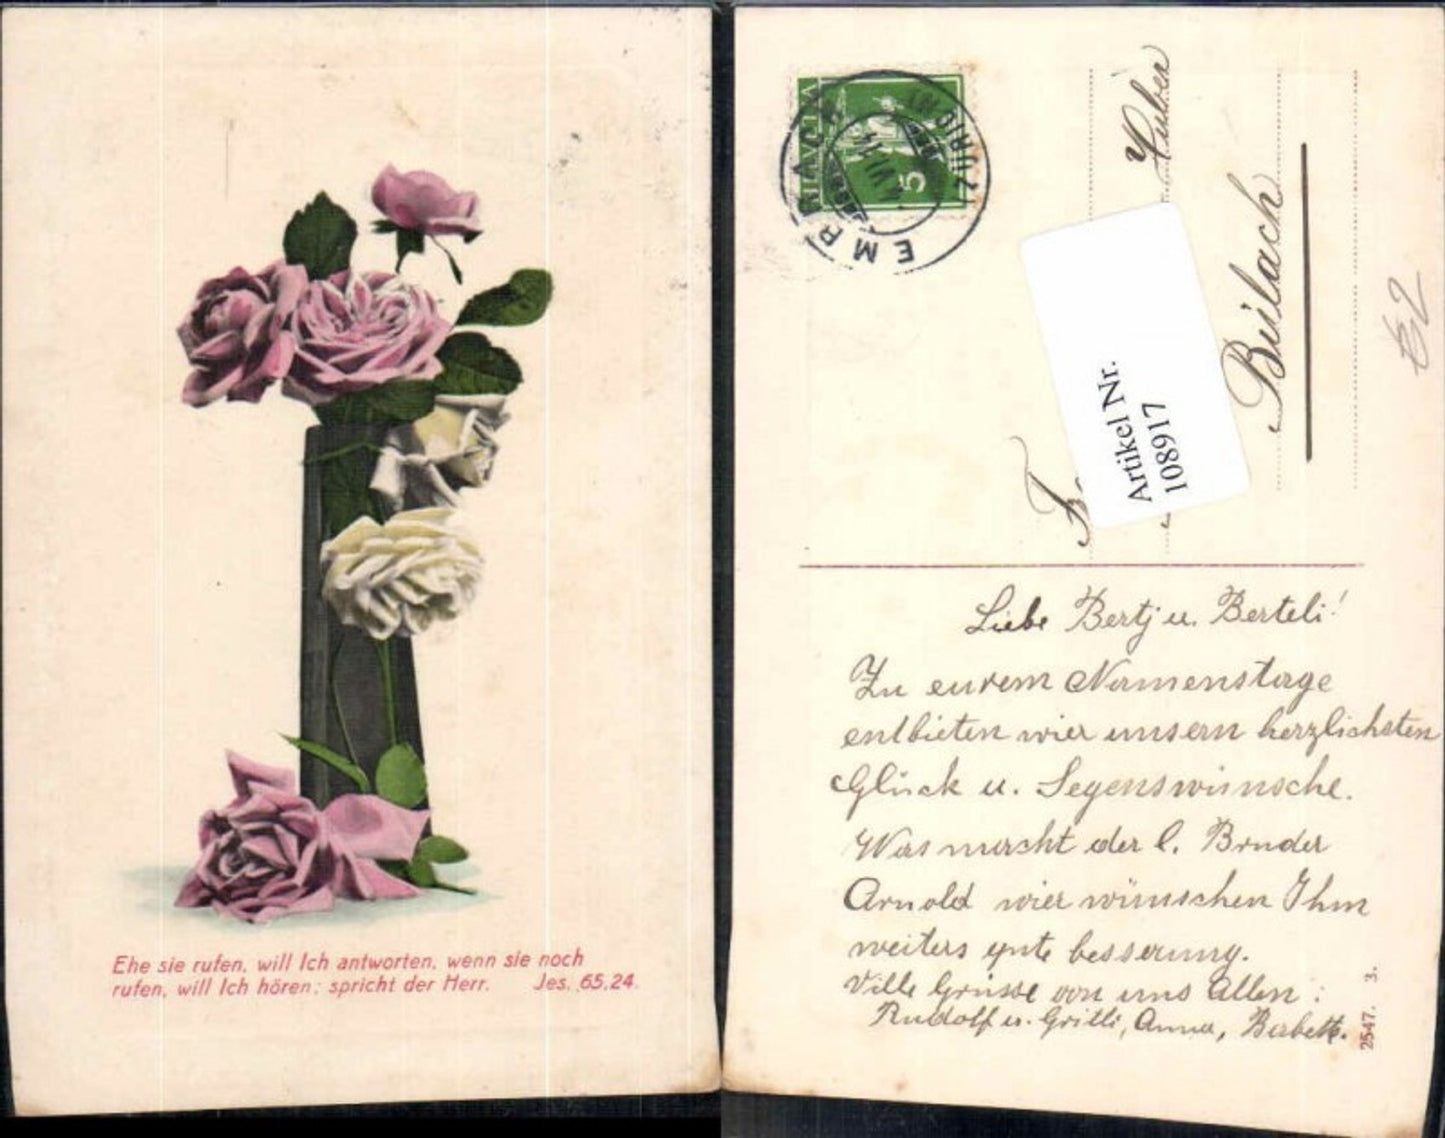 Ehe sie rufen, will Ich antworten, wenn sie noch
rufen, will Ich hören: spricht der Herr. Jes. 65,24.
HELVETIA
5
EMBRACH
(ZÜRICH)
Huber
Bülach
Artikel Nr.
108917
€2
Liebe Bertj u. Berteli!
Zu eurem Namenstage
entbieten wir unsern herzlichsten
Glück u. Segenswünsche.
Was macht der l. Bruder
Arnold wir wünschen Ihm
weiters gute besserung.
Ville Grüsse von uns Allen:
Rudolf u. Gritli, Anna, Babett.
2547. 3.